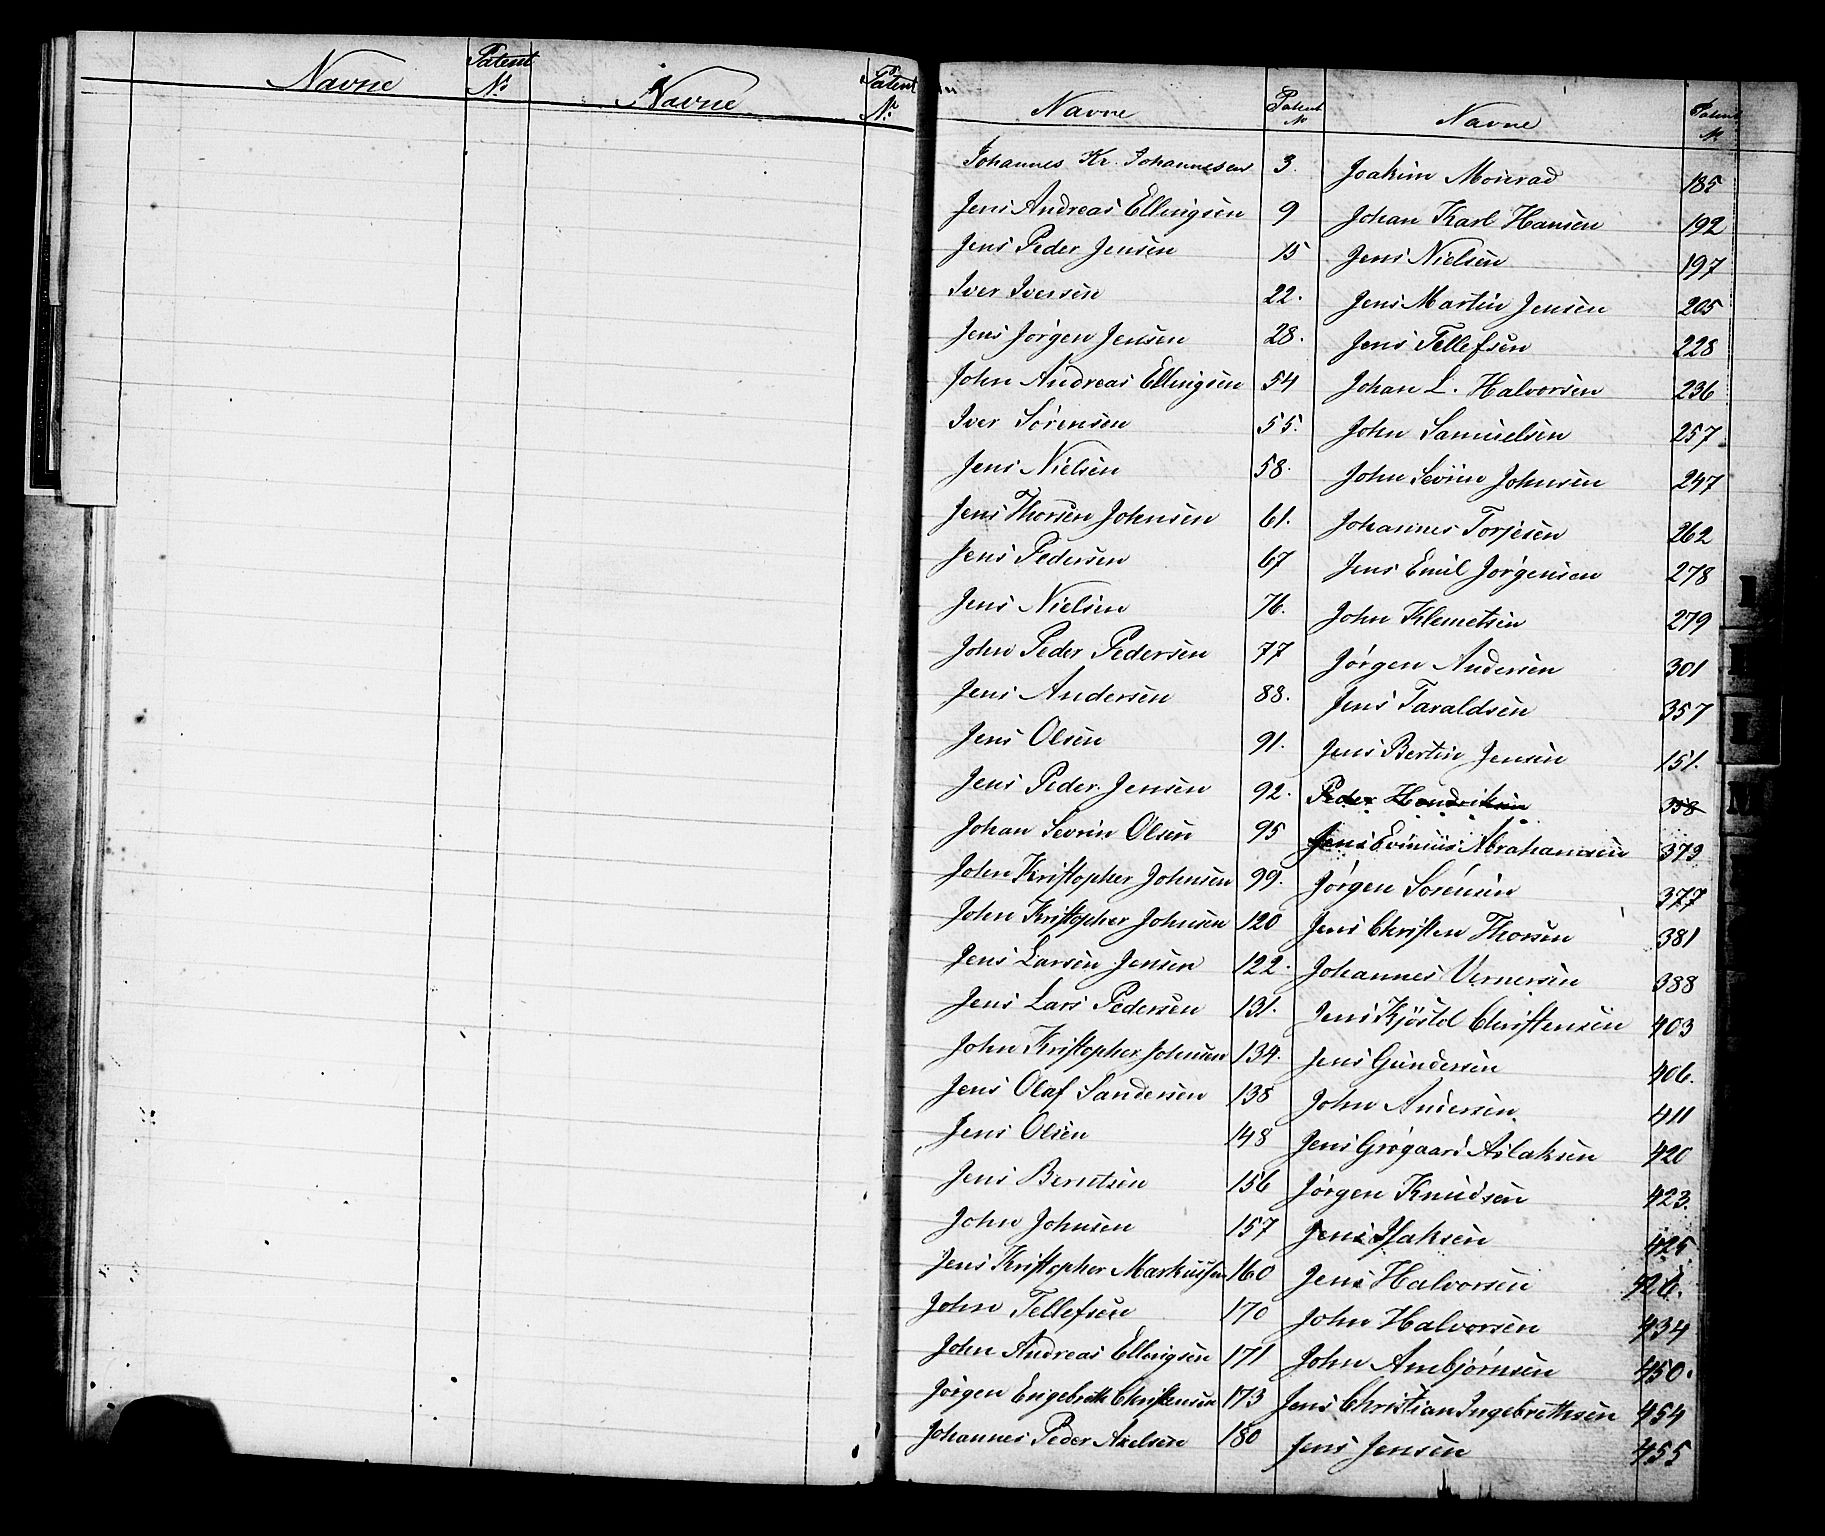 Navne Patent No Navne Patent No
Navne Patent No Navne Patent No
Johannes Kr. Johannesen 3.
Jens Andreas Ellingsen 9
Jens Peder Jensen 15
Iver Iversen 22.
Jens Jørgen Jensen 28.
John Andreas Ellingsen 54
Iver Sørensen 55.
Jens Nielsen 58.
Jens Thorsen Johnsen 61.
Jens Pedersen 67
Jens Nielsen 76.
John Peder Pedersen 77
Jens Andersen 88.
Jens Olsen 91.
Jens Peder Jensen 92.
Johan Sevrin Olsen 95
John Kristopher Johnsen 99.
John Kristopher Johnsen 120
Jens Larsen Jensen 122.
Jens Lars Pedersen 131.
John Kristopher Johnsen 134.
Jens Olaf Sandersen 138
Jens Olsen 148
Jens Berntsen 156
John Johnsen 157
Jens Kristopher Markussen 160
John Tellefsen 170
John Andreas Ellingsen 171
Jørgen Engebreth Christensen 173
Johannes Peder Axelsen 180
Joakim Monrad 185
Johan Karl Hansen 192
Jens Nielsen 197
Jens Martin Jensen 205
Jens Tellefsen 228
Johan L. Halvorsen 236
John Samuelsen 257
John Sevrin Johnsen 247
Johannes Torjesen 262
Jens Emil Jørgensen 278
John Klemetsen 279
Jørgen Andersen 301
Jens Taraldsen 357
Jens Bertin Jensen 151.
Peder Hendriksen 358
Jens Evinius Abrahamsen 373
Jørgen Sørensen 377
Jens Christen Thorsen 381
Johannes Vernersen 388
Jens Kjøstel Christensen 403
Jens Gundersen 406.
John Andersen 411
Jens Grøgaard Aslaksen 420
Jørgen Knudsen 423.
Jens Isaksen 425
Jens Halvorsen 426.
John Halvorsen 434
John Ambjørnsen 450.
Jens Christian Ingebrethsen 454
Jens Jensen 455
I
M